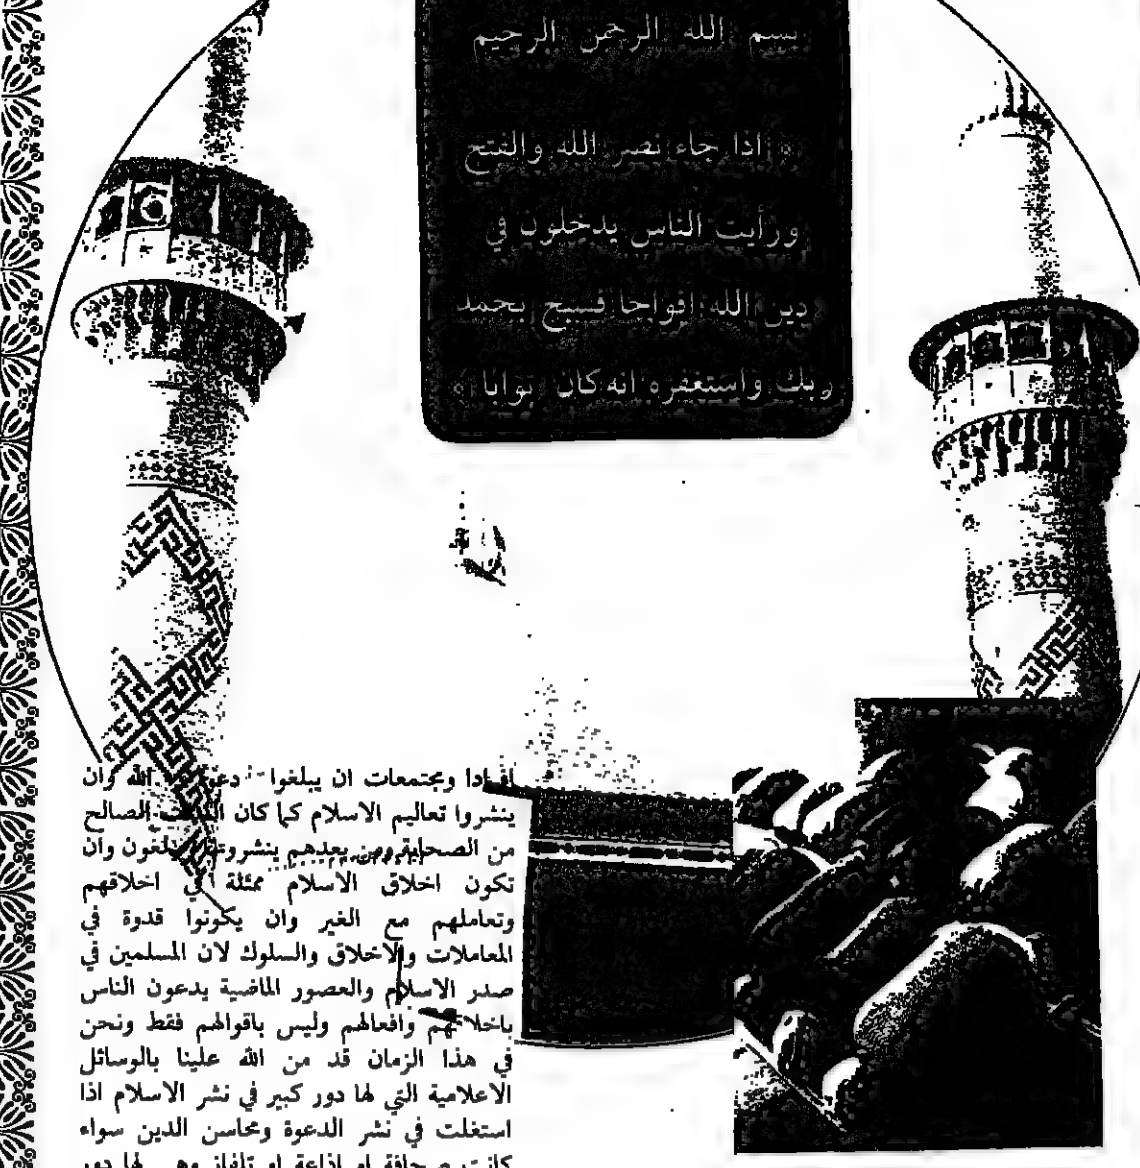 بسم الله الرحمن الرحيم
﴿ اذا جاء نصر الله والفتح
ورأيت الناس يدخلون في
دين الله افواجا فسبح بحمد
ربك واستغفره انه كان توابا ﴾
ومجتمعات ان يبلغوا الله وان
ينشروا تعاليم الاسلام كما كان الصالح
من الصحابة ومن بعدهم وان
تكون اخلاق الاسلام ممثلة في اخلاقهم
وتعاملهم مع الغير وان يكونوا قدوة في
المعاملات والاخلاق والسلوك لان المسلمين في
صدر الاسلام والعصور الماضية يدعون الناس
باخلاقهم وافعالهم وليس باقوالهم فقط ونحن
في هذا الزمان قد من الله علينا بالوسائل
الاعلامية التي لها دور كبير في نشر الاسلام اذا
استغلت في نشر الدعوة ومحاسن الدين سواء
كانت صحافة او اذاعة او تلفاز وهي لها دور